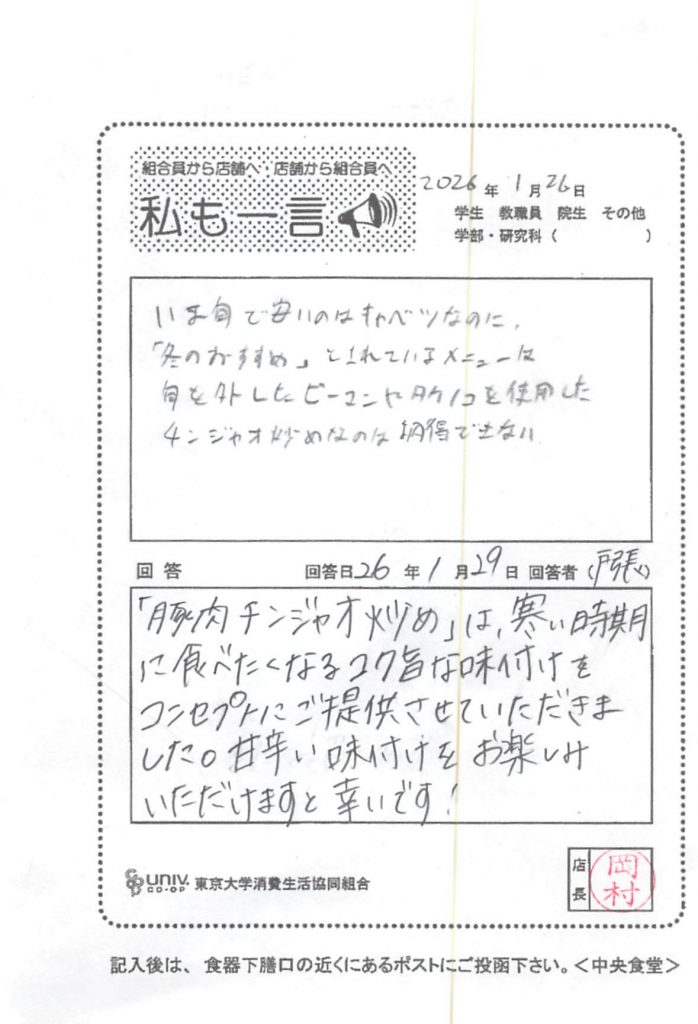 組合員から店舗へ・店舗から組合員へ
私も一言
2026年1月26日
学生 教職員 院生 その他
学部・研究科( )
いま旬で安いのはキャベツなのに、
「冬のおすすめ」とされているメニューは
旬を外したピーマンやタケノコを使用した
チンジャオ炒めなのは納得できない
回答 回答日26年1月29日 回答者(戸張)
「豚肉チンジャオ炒め」は、寒い時期
に食べたくなるコク旨な味付けを
コンセプトにご提供させていただきま
した。甘辛い味付けをお楽しみ
いただけますと幸いです!
UNIV. CO-OP 東京大学消費生活協同組合
店長 岡村
記入後は、食器下膳口の近くにあるポストにご投函下さい。<中央食堂>